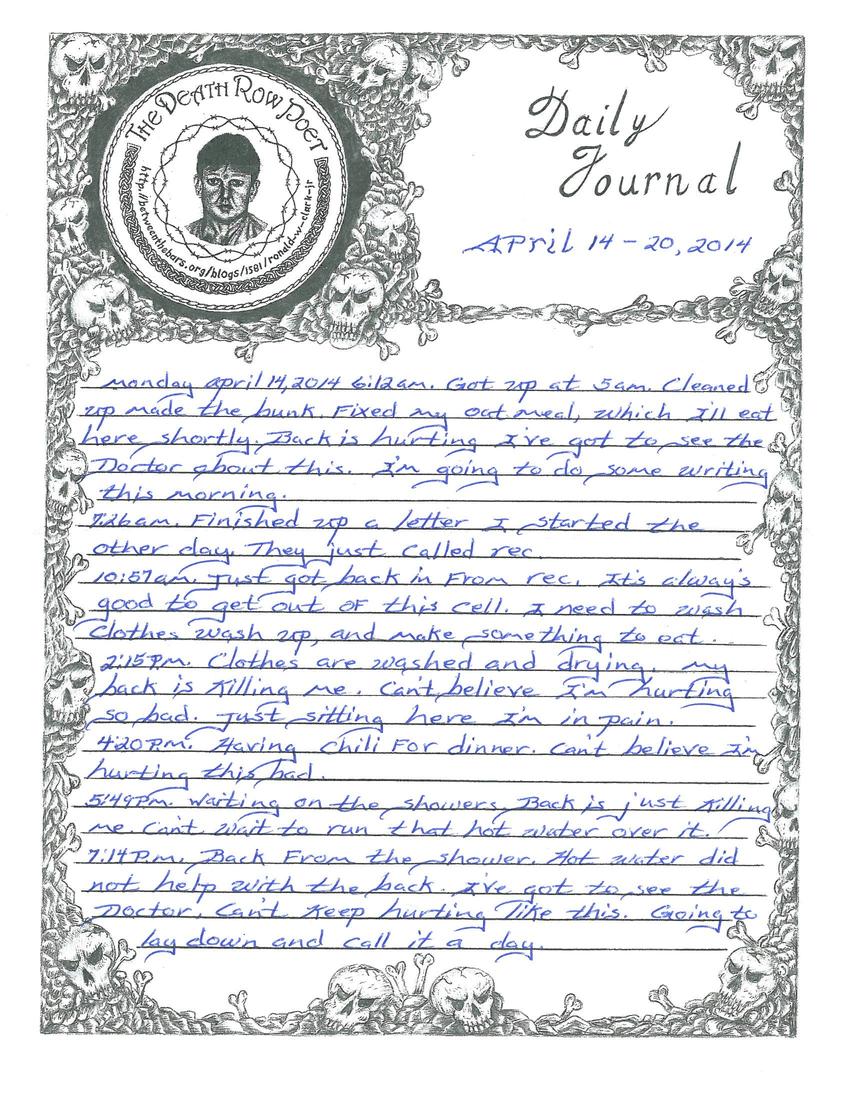 THE DEATH ROW POET
http://betweenthebars.org/blogs/1581/ronald-w-clark-jr
Daily
Journal
April 14-20, 2014
monday april 14, 2014 6:12am. Got up at 5am. Cleaned
up made the bunk. Fixed my oatmeal, which I'll eat
here shortly. Back is hurting I've got to see the
Doctor about this. I'm going to do some writing
this morning.
7:26am. Finished up a letter I started the
other day. They just called rec.
10:57am. Just got back in From rec. It's always
good to get out OF this cell. I need to wash
Clothes wash up, and make something to eat.
2:15Pm. Clothes are washed and drying. my
back is killing me. Can't believe I'm hurting
so bad. Just sitting here I'm in pain.
4:20P.m. Having chili For dinner. Can't believe I'm
hurting this bad.
5:49Pm. Waiting on the showers, Back is just killing
me. Can't wait to run that hot water over it.
7:14P.m. Back From the shower. Hot water did
not help with the back. I've got to see the
Doctor. Can't keep hurting like this. Going to
lay down and call it a day.